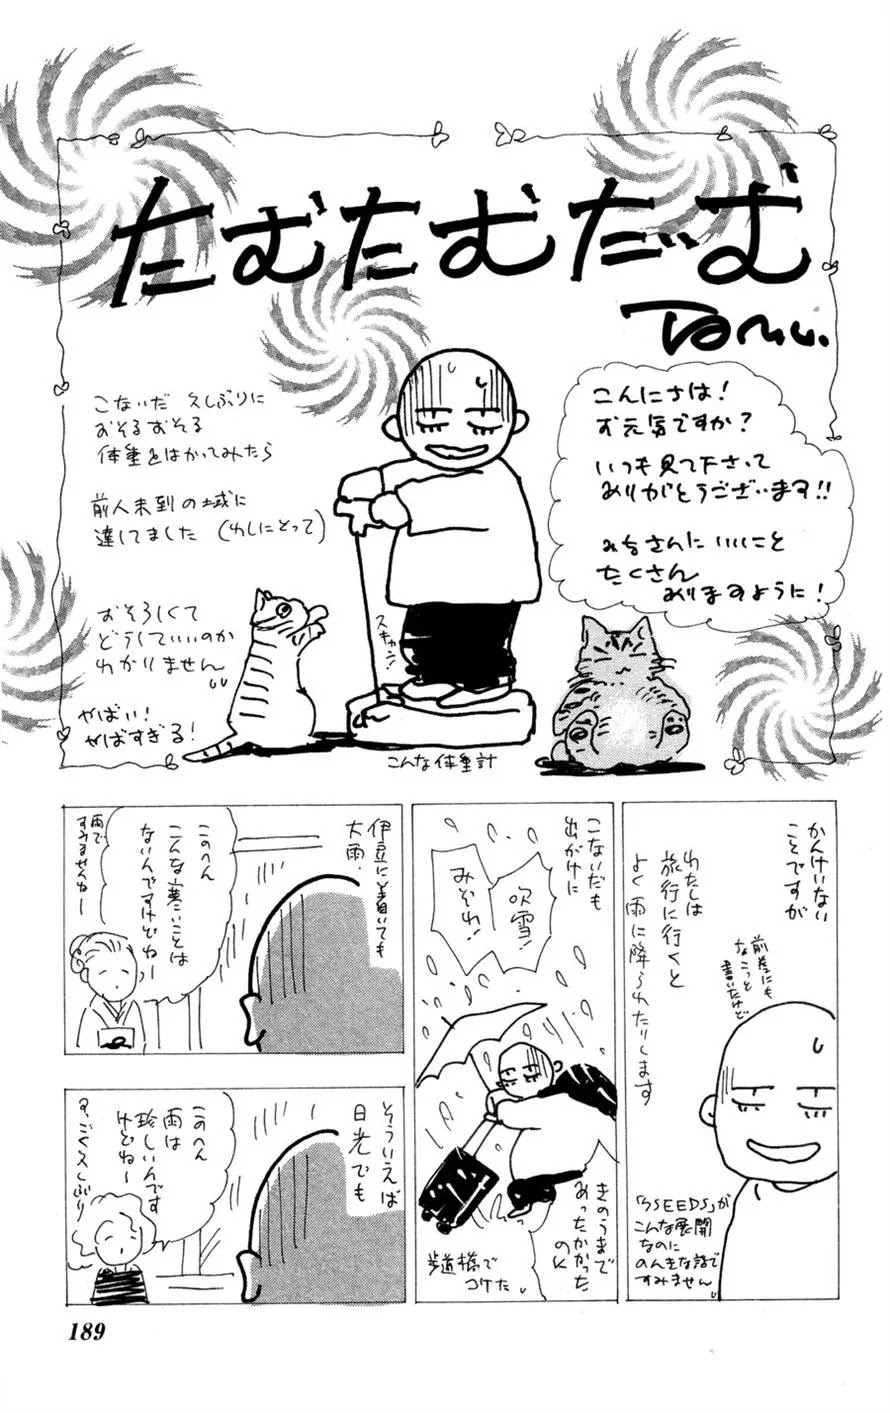 たむたむだーむ
Tamu.
こんにちは！
お元気ですか？
いつも見て下さって
ありがとうございます!!
みなさんにいいこと
たくさん
ありますように！
こないだ 久しぶりに
おそるおそる
体重をはかってみたら
前人未到の域に
達してました（わしにとって）
おそろしくて
どうしていいのか
わかりません
やばい！
やばすぎる！
スチャッ！
こんな体重計
かんけいない
ことですが
わたしは
旅行に行くと
よく雨に降られたりします
前巻にも
なこっと
書いたけど
「7SEEDS」が
こんな展開
なのに
のんきな話で
すみません
こないだも
出がけに
吹雪！
みぞれ！
きのうまで
あったかかった
のに
歩道橋で
コケた
伊豆に着いても
大雨．
このへん
こんな寒いことは
ないんですけどねー
雨で
すみませんねー
そういえば
日光でも
このへん
雨は
珍しいんです
けどねー
すっごく久しぶり
189